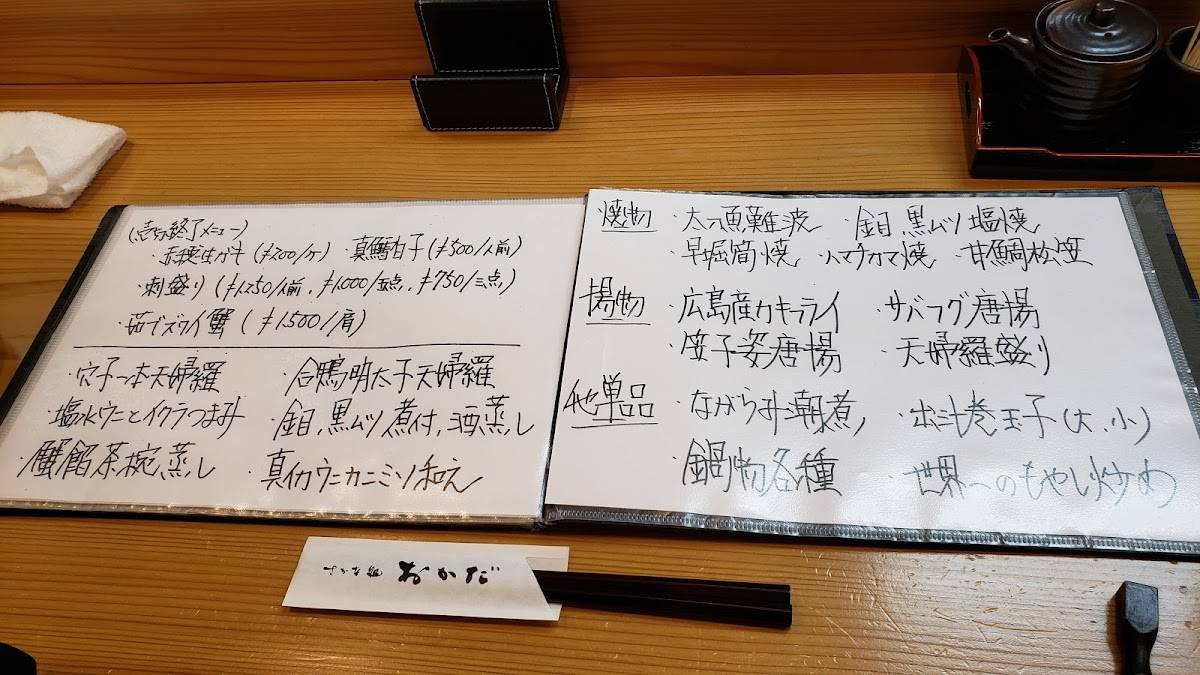 (売切終了メニュー)
・赤穂生がキ(¥200/ケ) ・真鱈白子(¥500/人前)
・刺盛り(¥1,250/人前、¥1,000/五点、¥750/三点)
・茹ズワイ蟹(¥1,500/肩)
・穴子一本天婦羅 ・合鴨明太子天婦羅
・塩水ウニとイクラつまみ ・金目、黒ムツ煮付、酒蒸し
・蟹餡茶椀蒸し ・真イカウニカニミソ和え
焼物 ・太刀魚難波 ・金目、黒ムツ塩焼
・早堀筍焼 ・ハマチカマ焼 ・甘鯛松笠
揚物 ・広島産カキフライ ・サバフグ唐揚
・笠子姿唐揚 ・天婦羅盛り
他単品 ・ながらみ潮煮 ・出汁巻玉子(大、小)
・鍋物各種 ・世界一のもやし炒め
おかだ